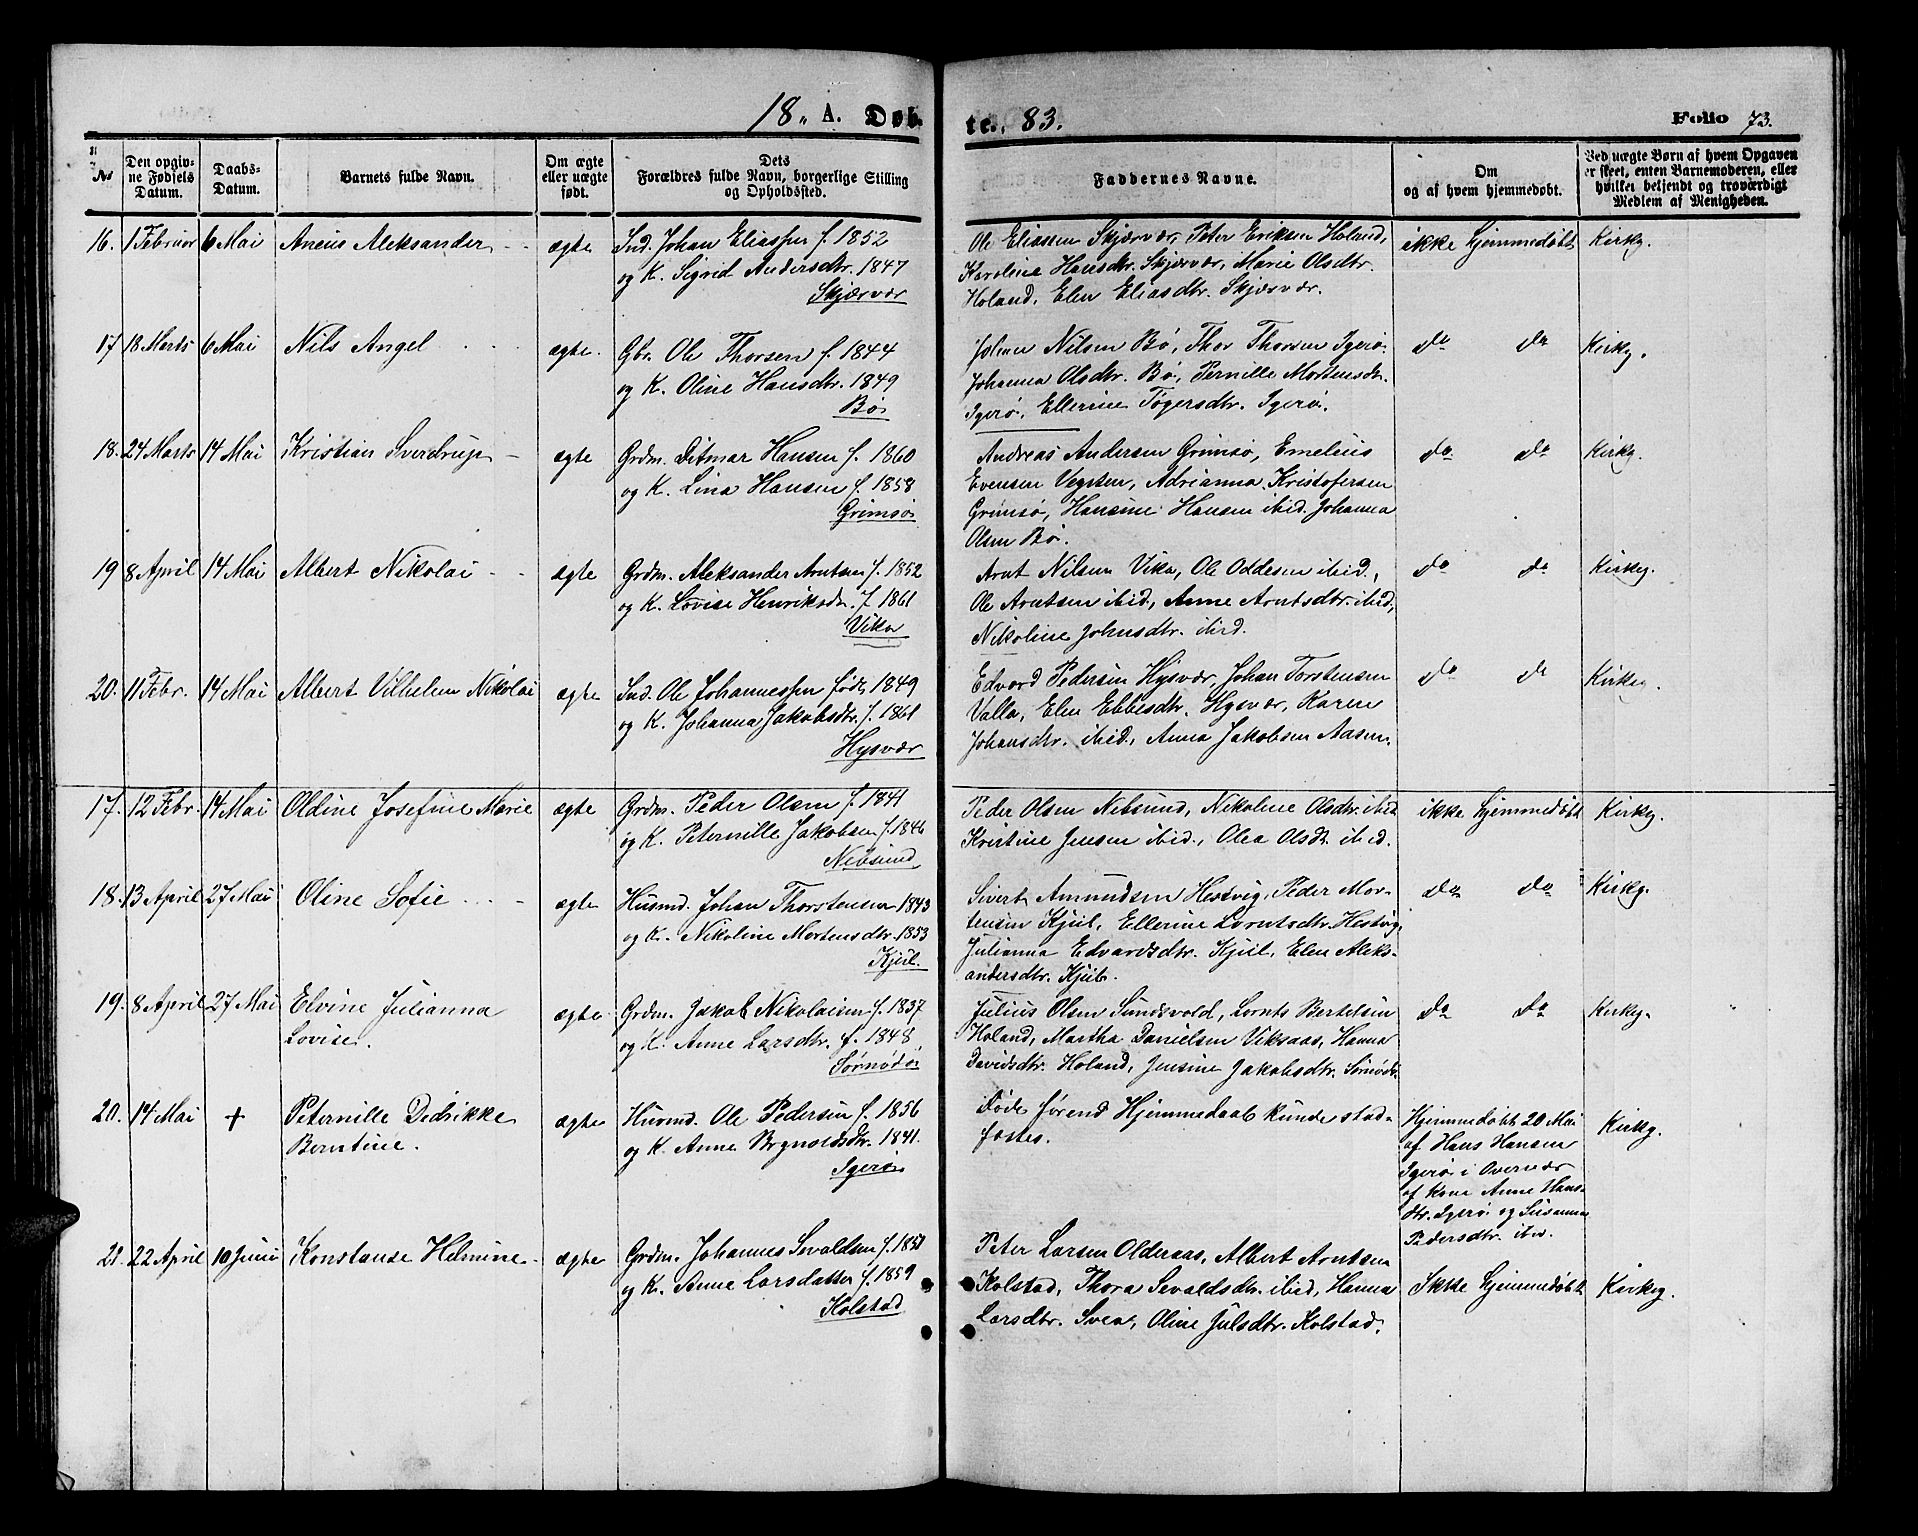 18„ A. Døb. te. 83.
Folio 73.
No
Den opgiv-
ne Fødsels
Datum.
Daabs-
Datum.
Barnets fulde Navn.
Om ægte
eller uægte
født.
Dets
Forældres fulde Navn, borgerlige Stilling
og Opholdssted.
Faddernes Navne.
Om
og af hvem hjemmedøbt.
Ved uægte Børn af hvem Opgaven
er skeet, enten Barnemoderen, eller
hvilket betjendt og troværdigt
Medlem af Menigheden.
16. 1 Februar 6 Mai Aneus Aleksander - - ægte
Ind. Johan Eliassen f. 1852
og K. Sigrid Andersdtr. 1847
Skjærvær
Ole Eliassen Skjærvær, Peter Eriksen Holand,
Karolina Hansdtr. Skjærvær, Marie Olsdtr.
Holand, Elen Eliasdtr. Skjærvær.
ikke hjemmedøbt Kirkg.
17 18 Marts 6 Mai Nils Angel ægte.
Gbr. Ole Thorsen f. 1844
og K. Oline Hansdtr. 1849
Bø
Johan Nilsen Bø, Thor Thorsen Igerø.
Johanna Olsdtr. Bø, Pernille Mortensdr.
Igerø, Ellerine Tøgersdtr. Igerø.
do do Kirkg.
18. 24 Marts 14 Mai Kristian Sverdrup - ægte
Grdm. Ditmar Hansen f. 1860
og K. Lina Hansen f. 1858
Grimsø
Andreas Andersen Grimsø, Emelius
Evensen Vegsten, Adrianna Kristofersen
Grimsø, Hansine Hansen ibid. Johanna
Olsen Bø.
do do Kirkg.
19 8 April 14 Mai Albert Nikolai - - ægte
Grdm. Aleksander Arntsen f. 1852
og K. Lovise Henriksdr. f. 1861
Vika
Arnt Nilsen Vika, Ole Oddesen ibid.,
Ole Arntsen ibid, Anne Arntsdtr. ibid,
Nikoline Johnsdtr. ibid.
do do Kirkg.
20. 11 Febr. 14 Mai Albert Vilhelm Nikolai ægte
Ind. Ole Johannessen født 1849
og K. Johanna Jakobsdtr. f. 1861
Hysvær
Edvard Pedersen Hysvær, Johan Torstensen
Valla, Elen Ebbesdtr. Hysvær, Karen
Johansdtr. ibid., Anna Jakobsen Aasen.
do do Kirkg.
17. 12 Febr. 14 Mai Oldine Josefine Marie ægte
Grdm. Peder Olsen f. 1841
og K. Peternille Jakobsen f. 1846
Nebsund
Peder Olsen Nebsund, Nikoline Olsdtr. ibid
Kristine Jensen ibid., Olea Olsdt. ibid.
ikke hjemmedøbt Kirkg.
18. 13 April 27 Mai Oline Sofie - ægte
Husmd. Johan Thorstensen 1843
og K. Nikoline Mortensdtr. 1853
Kjul.
Sivert Amundsen Hestvig, Peder Mor-
tensen Kjul, Ellerine Lorntsdtr. Hestvig,
Julianna Edvardsdtr. Kjul, Elen Aleks-
andersdtr. Kjul.
do do Kirkg.
19. 8 April 27 Mai Elvine Julianna
Lovise. ægte
Grdm. Jakob Nikolaisen f. 1837
og K. Anne Larsdtr. f. 1848,
Sørnødø
Julius Olsen Sundsvold, Lornts Bertelsen
Holand, Martha Danielsen Viksaas, Hanna
Davidsdtr. Holand, Jensine Jakobsdtr. Sørnødø
do do Kirkg.
20. 14 Mai + Peternille Dedrikke
Berntine. ægte
Husmd. Ole Pedersen f. 1856
og K. Anne Brynoldsdtr. 1841.
Igerø
Døde førend Hjemmedaab kunde stad-
fæstes.
Hjemmedøbt 20 Mai
af Hans Hansen
Igerø i Overvær
af Kone Anne Hans-
dtr. Igerø og Susanna
Pedersdtr. ibid.
Kirkg.
21. 22 April 10 Juni Konstanse Helmine - ægte
Grdm. Johannes Sevaldsen f. 1851
og K. Anne Larsdatter f. 1859
Kolstad
Peter Larsen Olderaas, Albert Arntsen
Kolstad, Thora Sevaldsdtr. ibid, Hanna
Larsdtr. Svea, Oline Julsdtr. Kolstad.
Ikke hjemmedøbt Kirkg.